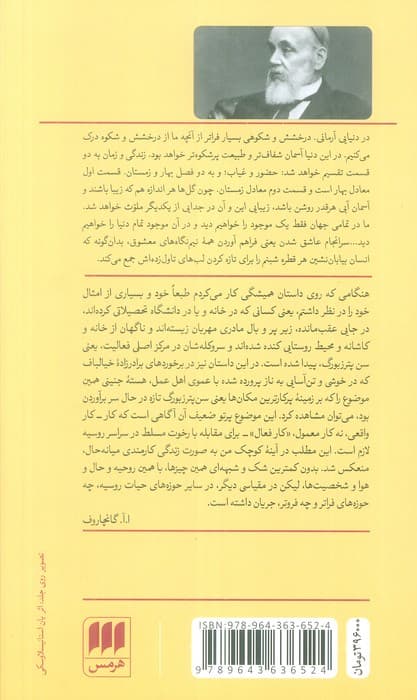 در دنیایی آرمانی، درخشش و شکوهی بسیار فراتر از آنچه ما از درخشش و شکوه درک
می‌کنیم. در این دنیا آسمان شفاف‌تر و طبیعت پرشکوه‌تر خواهد بود. زندگی و زمان به دو
قسمت تقسیم خواهد شد: حضور و غیاب؛ و به دو فصل بهار و زمستان. قسمت اول
معادل بهار است و قسمت دوم معادل زمستان. چون گل‌ها هر اندازه هم که زیبا باشند و
آسمان آبی هرقدر روشن باشد، زیبایی این و آن در جدایی از یکدیگر ملوّث خواهد شد.
ما در تمامی جهان فقط یک موجود را خواهیم دید و در آن موجود تمام دنیا را خواهیم
دید...سرانجام عاشق شدن یعنی فراهم آوردن همهٔ نیم‌نگاه‌های معشوق، بدان‌گونه که
انسان بیابان‌نشین هر قطره شبنم را برای تازه کردن لب‌های تاول‌زده‌اش جمع می‌کند.
هنگامی که روی داستان همیشگی کار می‌کردم طبعاً خود و بسیاری از امثال
خود را در نظر داشتم، یعنی کسانی که در خانه و یا در دانشگاه تحصیلاتی کرده‌اند،
در جایی عقب‌مانده، زیر پر و بال مادری مهربان زیسته‌اند و ناگهان از خانه و
کاشانه و محیط روستایی کنده شده‌اند و سروکله‌شان در مرکز اصلی فعالیت، یعنی
سن پترزبورگ، پیدا شده است. در این داستان نیز در برخوردهای برادرزادهٔ خیالباف
که در خوشی و تن‌آسایی به ناز پرورده شده با عموی اهل عمل، هستهٔ جنینی همین
موضوع را که بر زمینهٔ پرکارترین مکان‌ها یعنی سن‌پترزبورگ تازه در حال سر برآوردن
بود، می‌توان مشاهده کرد. این موضوع پرتو ضعیف آن آگاهی است که کار ـ کار
واقعی، نه کار معمول، «کار فعال» ـ برای مقابله با رخوت مسلط در سراسر روسیه
لازم است. این مطلب در آینهٔ کوچک من به صورت زندگی کارمندی میانه‌حال،
منعکس شد. بدون کمترین شک و شبهه‌ای همین چیزها، با همین روحیه و حال و
هوا و شخصیت‌ها، لیکن در مقیاسی دیگر، در سایر حوزه‌های حیات روسیه، چه
حوزه‌های فراتر و چه فروتر، جریان داشته است.
ا.آ. گانچاروف
تصویر روی جلد: اثر یان استانیسلاوسکی
هرمس
ISBN: 978-964-363-652-4
9 789643 636524
۳۹۶۰۰۰ تومان